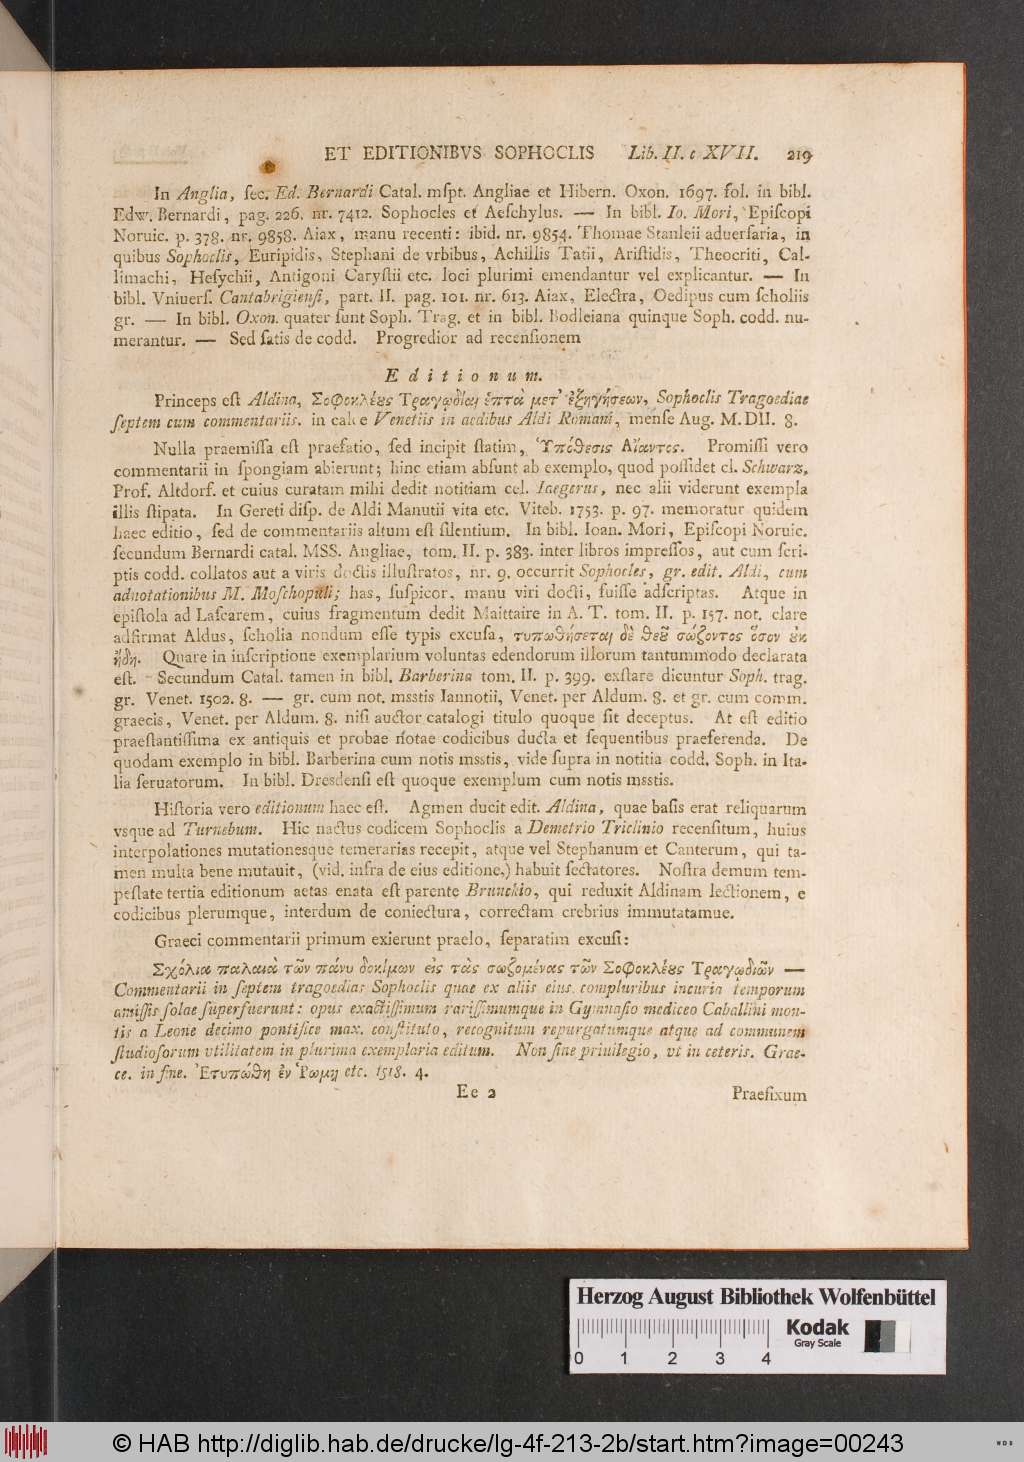 ET EDITIONIBVS SOPHOCLIS Lib. II. c XVII. 219
In Anglia, ſec. Ed. Bernardi Catal. mſpt. Angliae et Hibern. Oxon. 1697. fol. in bibl.
Edw. Bernardi, pag. 226. nr. 7412. Sophocles et Aeſchylus. — In bibl. Io. Mori, Epiſcopi
Noruic. p. 378. nr. 9858. Aiax, manu recenti: ibid. nr. 9854. Thomae Stanleii aduerſaria, in
quibus Sophoclis, Euripidis, Stephani de vrbibus, Achillis Tatii, Ariſtidis, Theocriti, Cal-
limachi, Heſychii, Antigoni Caryſtii etc. loci plurimi emendantur vel explicantur. — In
bibl. Vniuerſ. Cantabrigienſi, part. II. pag. 101. nr. 613. Aiax, Electra, Oedipus cum ſcholiis
gr. — In bibl. Oxon. quater ſunt Soph. Trag. et in bibl. Bodleiana quinque Soph. codd. nu-
merantur. — Sed ſatis de codd. Progredior ad recenſionem
Editionum.
Princeps eſt Aldina, Σοφοκλέȣς Τραγῳδίαι ἑπτὰ μετ' ἐξηγήσεων, Sophoclis Tragoediae
ſeptem cum commentariis. in calce Venetiis in aedibus Aldi Romani, menſe Aug. M. DII. 8.
Nulla praemiſſa eſt praefatio, ſed incipit ſtatim, Ὑπόθεσις Αἴαντος. Promiſſi vero
commentarii in ſpongiam abierunt; hinc etiam abſunt ab exemplo, quod poſſidet cl. Schwarz,
Prof. Altdorf. et cuius curatam mihi dedit notitiam cel. Iaegerus, nec alii viderunt exempla
illis ſtipata. In Gereti diſp. de Aldi Manutii vita etc. Viteb. 1753. p. 97. memoratur quidem
haec editio, ſed de commentariis altum eſt ſilentium. In bibl. Ioan. Mori, Epiſcopi Noruic.
ſecundum Bernardi catal. MSS. Angliae, tom. II. p. 383. inter libros impreſſos, aut cum ſcri-
ptis codd. collatos aut a viris doctis illuſtratos, nr. 9. occurrit Sophocles, gr. edit. Aldi, cum
adnotationibus M. Moſchopuli; has, ſuſpicor, manu viri docti, fuiſſe adſcriptas. Atque in
epiſtola ad Laſcarem, cuius fragmentum dedit Maittaire in A. T. tom. II. p. 157. not. clare
adfirmat Aldus, ſcholia nondum eſſe typis excuſa, τυπωθήσεται δὲ θεȣ͂ σώζοντος ὅσον ȣ̓κ
ἤδη. Quare in inſcriptione exemplarium voluntas edendorum illorum tantummodo declarata
eſt. Secundum Catal. tamen in bibl. Barberina tom. II. p. 399. exſtare dicuntur Soph. trag.
gr. Venet. 1502. 8. — gr. cum not. msstis Iannotii, Venet. per Aldum. 8. et gr. cum comm.
graecis, Venet. per Aldum. 8. niſi auctor catalogi titulo quoque ſit deceptus. At eſt editio
praeſtantiſſima ex antiquis et probae notae codicibus ducta et ſequentibus praeferenda. De
quodam exemplo in bibl. Barberina cum notis msstis, vide ſupra in notitia codd. Soph. in Ita-
lia ſeruatorum. In bibl. Dresdenſi eſt quoque exemplum cum notis msstis.
Hiſtoria vero editionum haec eſt. Agmen ducit edit. Aldina, quae baſis erat reliquarum
vsque ad Turnebum. Hic nactus codicem Sophoclis a Demetrio Triclinio recenſitum, huius
interpolationes mutationesque temerarias recepit, atque vel Stephanum et Canterum, qui ta-
men multa bene mutauit, (vid. infra de eius editione,) habuit ſectatores. Noſtra demum tem-
peſtate tertia editionum aetas enata eſt parente Brunckio, qui reduxit Aldinam lectionem, e
codicibus plerumque, interdum de coniectura, correctam crebrius immutatamue.
Graeci commentarii primum exierunt praelo, ſeparatim excuſi:
Σχόλια παλαιὰ τῶν πάνυ δοκίμων εἰς τὰς σωζομένας τῶν Σοφοκλέȣς Τραγῳδιῶν —
Commentarii in ſeptem tragoedias Sophoclis quae ex aliis eius compluribus incuria temporum
amiſſis ſolae ſuperfuerunt: opus exactiſſimum rariſſimumque in Gymnaſio mediceo Caballini mon-
tis a Leone decimo pontifice max. conſtituto, recognitum repurgatumque atque ad communem
ſtudioſorum vtilitatem in plurima exemplaria editum. Non ſine priuilegio, vt in ceteris. Grae-
ce. in fine. Ἐτυπώθη ἐν Ῥωμῃ etc. 1518. 4.
Ee 2 Praefixum
Herzog August Bibliothek Wolfenbüttel
0 1 2 3 4
Kodak
Gray Scale
© HAB http://diglib.hab.de/drucke/lg-4f-213-2b/start.htm?image=00243